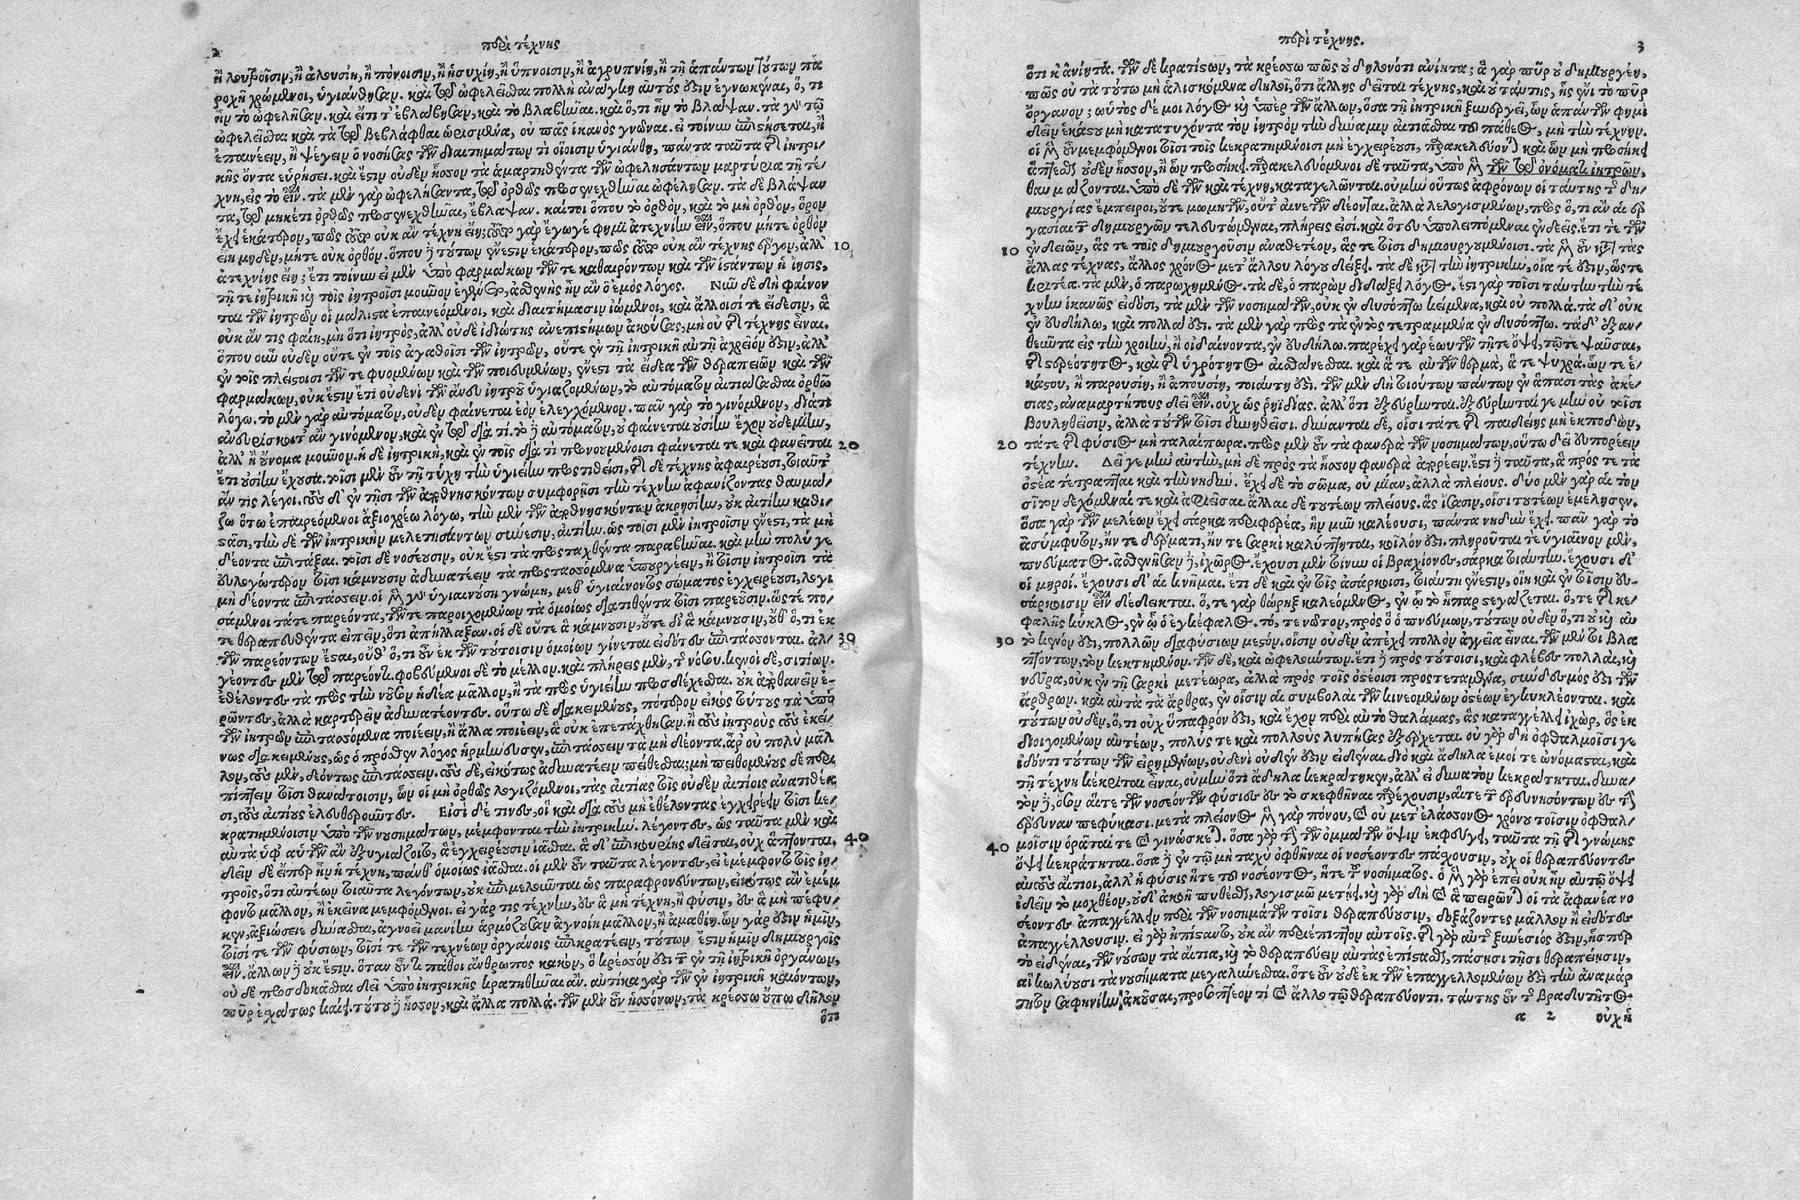 2
περὶ τέχνης
ἢ λουτροῖσιν, ἢ ἀλουσίη, ἢ πόνοισιν, ἢ ἡσυχίη, ἢ ὕπνοισιν, ἢ ἀγρυπνίη, ἢ τῇ ἁπάντων τούτων τα
ροχῇ χρώμενοι, ὑγιάνθησαν. καὶ τῷ ὠφελεῖσθαι πολλὴ ἀνάγκη αὐτούς ἐστιν ἐγνωκέναι, ὅ, τι
ἦν τὸ ὠφελῆσαν. καὶ εἴ τί τ' ἐβλάβησαν, καὶ τῷ βλαβῆναι. καὶ ὅ, τι ἦν τὸ βλάψαν. τὰ γὰρ τῷ
ὠφελεῖσθαι καὶ τὰ τῷ βεβλάφθαι ὡρισμένα, οὐ πᾶς ἱκανὸς γνῶναι. εἰ τοίνυν ἐπιστήσεται, ἢ
ἐπαινέειν, ἢ ψέγειν ὁ νοσήσας τῶν διαιτημάτων τι οἷσιν ὑγιάνθη, πάντα ταῦτα τῆς ἰητρι-
κῆς ὄντα εὑρήσει. καὶ ἔστιν οὐδὲν ἧσσον τὰ ἁμαρτηθέντα τῶν ὠφελησάντων μαρτύρια τῇ τέ-
χνῃ, εἰς τὸ εἶναι. τὰ μὲν γὰρ ὠφελήσαντα, τῷ ὀρθῶς προσενεχθῆναι ὠφέλησαν. τὰ δὲ βλάψαν
τα, τῷ μηκέτι ὀρθῶς προσενεχθῆναι, ἔβλαψαν. καίτοι ὅπου τὸ ὀρθὸν, καὶ τὸ μὴ ὀρθὸν, ὅρον
ἔχει ἑκάτερον, πῶς τοῦτο οὐκ ἂν τέχνη εἴη; τοῦτο γὰρ ἔγωγέ φημι ἀτεχνίην εἶναι, ὅπου μήτε ὀρθὸν
εἴη μηδὲν, μήτε οὐκ ὀρθόν. ὅπου δὲ τούτων ἔνεστιν ἑκάτερον, πῶς τοῦτο οὐκ ἂν τέχνης ἔργον, ἀλλ' 10
ἀτεχνίης εἴη; ἔτι τοίνυν εἰ μὲν ὑπὸ φαρμάκων τῶν τε καθαιρόντων καὶ τῶν ἱστάντων ἡ ἴησις,
τῇ τε ἰητρικῇ καὶ τοῖς ἰητροῖσι μοῦνον ἐγένετο, ἀσθενὴς ἦν ἂν ὁ ἐμὸς λόγος. Νῦν δὲ δὴ φαίνον
ται τῶν ἰητρῶν οἱ μάλιστα ἐπαινεόμενοι, καὶ διαιτήμασιν ἰώμενοι, καὶ ἄλλοισί τε εἴδεσιν, ἃ
οὐκ ἄν τις φαίη, μὴ ὅτι ἰητρὸς, ἀλλ' οὐδὲ ἰδιώτης ἀνεπιστήμων ἀκούσας, μὴ οὐ τῆς τέχνης εἶναι.
ὅπου οὖν οὐδὲν οὔτε ἐν τοῖς ἀγαθοῖσι τῶν ἰητρῶν, οὔτε ἐν τῇ ἰητρικῇ αὐτῇ ἀχρεῖόν ἐστιν, ἀλλ'
ἐν τοῖς πλείστοισι τῶν τε φυομένων καὶ τῶν ποιευμένων, ἔνεστι τὰ εἴδεα τῶν θεραπειῶν καὶ τῶν
φαρμάκων, οὐκ ἔστιν ἔτι οὐδενὶ τῶν ἄνευ ἰητροῦ ὑγιαζομένων, τὸ αὐτόματον αἰτιᾶσασθαι ὀρθῷ
λόγῳ. τὸ μὲν γὰρ αὐτόματον, οὐδὲν φαίνεται ἐὸν ἐλεγχόμενον. πᾶν γὰρ τὸ γινόμενον, διάτι
ἀνευρίσκοιτ' ἂν γινόμενον, καὶ ἐν τῷ διά τι. τὸ δὲ αὐτόματον, οὐ φαίνεται οὐσίην ἔχον οὐδεμίην,
ἀλλ' ἢ οὔνομα μοῦνον. ἡ δὲ ἰητρικὴ, καὶ ἐν τοῖς διά τι προνοουμένοισι φαίνεταί τε καὶ φανεῖται 20
ἔτι οὐσίην ἔχουσα. τοῖσι μὲν οὖν τῇ τύχῃ τὴν ὑγιείην προστιθεῖσι, τῆς δὲ τέχνης ἀφαιρέουσι, τοιαῦτ'
ἄν τις λέγοι. τοὺς δ' ἐν τῇσι τῶν ἀποθνησκόντων συμφορῇσι τὴν τέχνην ἀφανίζοντας θαυμά-
ζω ὅτῳ ἐπαιρεόμενοι ἀξιοχρέῳ λόγῳ, τὴν μὲν τῶν ἀποθνησκόντων ἀκρησίην, οὐκ αἰτίην καθι-
στᾶσι, τὴν δὲ τῶν ἰητρικὴν μελετησάντων σύνεσιν, αἰτίην. ὡς τοῖσι μὲν ἰητροῖσιν ἔνεστι, τὰ μὴ
δέοντα ἐπιτάξαι. τοῖσι δὲ νοσέουσιν, οὐκ ἔστι τὰ προσταχθέντα παραβῆναι. καὶ μὴν πολύ γε
εὐλογώτερον τοῖσι κάμνουσιν ἀδυνατέειν τὰ προστασσόμενα ὑπουργέειν, ἢ τοῖσιν ἰητροῖσι τὰ
μὴ δέοντα ἐπιτάσσειν. οἱ μὲν γὰρ ὑγιαινούσῃ γνώμῃ, μεθ' ὑγιαίνοντος σώματος ἐγχειρέουσι, λογι
σάμενοι τά τε παρεόντα, τῶν τε παροιχομένων τὰ ὁμοίως διατιθέντα τοῖσι παρεοῦσιν. ὥστέ πο-
τε θεραπευθέντα εἰπεῖν, ὅτι ἀπήλλαξαν. οἱ δὲ οὔτε ἃ κάμνουσιν, οὔτε δι' ἃ κάμνουσιν, οὔθ' ὅ, τι ἐκ
τῶν παρεόντων ἔσται, οὔθ' ὅ, τι ἐκ τῶν τούτοισιν ὁμοίων γίνεται εἰδότες ἐπιτάσσονται. ἀλ- 30
γέοντες μὲν τῷ παρεόντι. φοβεύμενοι δὲ τὸ μέλλον. καὶ πλήρεις μὲν, τῆς νόσου. κενοὶ δὲ, σιτίων.
ἐθέλοντες τὰ πρὸς τὴν νοῦσον ἡδέα μᾶλλον, ἢ τὰ πρὸς ὑγιείην προσδέχεσθαι. οὐκ ἀποθανεῖν ἐ-
ρῶντες, ἀλλὰ καρτερεῖν ἀδυνατέοντες. οὕτω δὲ διακειμένους, πότερον εἰκὸς τούτους τὰ ὑπὸ
τῶν ἰητρῶν ἐπιτασσόμενα ποιέειν, ἢ ἄλλα ποιέειν, ἃ οὐκ ἐπετάχθησαν. ἢ τοὺς ἰητροὺς τοὺς ἐκεί-
νως διακειμένους, ὡς ὁ πρόσθεν λόγος ἡρμήνευσεν, ἐπιτάσσειν τὰ μὴ δέοντα. ἆρ' οὐ πολὺ μᾶλ
λον, τοὺς μὲν, δεόντως ἐπιτάσσειν, τοὺς δὲ, εἰκότως ἀδυνατέειν πείθεσθαι; μὴ πειθομένους δὲ περι
πίπτειν τοῖσι θανάτοισιν, ὧν οἱ μὴ ὀρθῶς λογιζόμενοι, τὰς αἰτίας τοῖς οὐδὲν αἰτίοις ἀνατιθέα
σι, τοὺς αἰτίους ἐλευθεροῦντες. Εἰσὶ δέ τινες, οἳ καὶ διὰ τοὺς μὴ ἐθέλοντας ἐγχειρεῖν τοῖσι κε-
κρατημένοισιν ὑπὸ τῶν νοσημάτων, μέμφονται τὴν ἰητρικὴν. λέγοντες, ὡς ταῦτα μὲν καὶ
αὐτὰ ὑφ' αὑτῶν ἂν ἐξυγιάζοιτο, ἃ ἐγχειρέουσιν ἰᾶσθαι. ἃ δ' ἐπικουρίης δεῖται, οὐχ ἅπτονται. 40
δεῖν δὲ εἴπερ ἦν ἡ τέχνη, πάνθ' ὁμοίως ἰᾶσθαι. οἱ μὲν οὖν ταῦτα λέγοντες, εἰ ἐμέμφοντο τοῖς ἰη-
τροῖς, ὅτι αὐτέων τοιαῦτα λεγόντων, οὐκ ἐπιμελοῦνται ὡς παραφρονεύντων, εἰκότως ἂν ἐμέμ
φοντο μᾶλλον, ἢ ἐκεῖνα μεμφόμενοι. εἰ γάρ τις τέχνην, ἐς ἃ μὴ τέχνη, ἢ φύσιν, ἐς ἃ μὴ πέφυ-
κεν, ἀξιώσειε δύνασθαι, ἀγνοεῖ μανίην ἁρμόζουσαν ἀγνοίῃ μᾶλλον, ἢ ἀμαθίῃ. ὧν γάρ ἐστιν ἡμῖν,
τοῖσί τε τῶν φύσιων, τοῖσί τε τῶν τεχνέων ὀργάνοις ἐπικρατέειν, τούτων ἐστὶν ἡμῖν δημιουργοῖς
εἶναι. ἄλλων δὲ οὐκ ἔστιν. ὅταν οὖν τι πάθοι ἄνθρωπος κακὸν, ὃ κρέσσον ἐστὶ τῶν ἐν τῇ ἰητρικῇ ὀργάνων,
οὐ δὲ προσδοκᾶσθαι δεῖ ὑπὸ ἰητρικῆς κρατηθῆναι ἄν. αὐτίκα γὰρ τῶν ἐν ἰητρικῇ καιόντων,
πῦρ ἐσχάτως καίει. τούτου δὲ ἧσσον, καὶ ἄλλα πολλά. τῶν μὲν οὖν ἡσσόνων, τὰ κρέσσω οὔπω δῆλον
ὅτι
περὶ τέχνης.
3
ὅτι κ' ἀνίητα. τῶν δὲ κρατίστων, τὰ κρέσσω πῶς οὐ δηλονότι ἀνίητα; ἃ γὰρ πῦρ οὐ δημιουργέει,
πῶς οὐ τὰ τούτῳ μὴ ἁλισκόμενα δηλοῖ, ὅτι ἄλλης δεῖται τέχνης, καὶ οὐ ταύτης, ἧς ἔνι τὸ πῦρ
ὄργανον; ωὑτὸς δέ μοι λόγος καὶ ὑπὲρ τῶν ἄλλων, ὅσα τῇ ἰητρικῇ ξυνεργεῖ, ὧν ἁπάντων φημὶ
δεῖν ἑκάστου μὴ κατατυχόντα τὸν ἰητρὸν τὴν δύναμιν αἰτιᾶσθαι τοῦ πάθεος, μὴ τὴν τέχνην.
οἱ μὲν οὖν μεμφόμενοι τοῖσι τοῖς κεκρατημένοισι μὴ ἐγχειρέουσι, παρακελεύονται καὶ ὧν μὴ προσήκει
ἅπτεσθαι οὐδὲν ἧσσον, ἢ ὧν προσήκει. παρακελευόμενοι δὲ ταῦτα, ὑπὸ μὲν τῶν τῷ ὀνόματι ἰητρῶν,
θαυμάζονται. ὑπὸ δὲ τῶν καὶ τέχνῃ, καταγελῶνται. οὐ μὴν οὕτως ἀφρόνων οἱ ταύτης τῆς δη-
μιουργίας ἔμπειροι, οὔτε μωμητῶν, οὔτ' αἰνετῶν δέονται. ἀλλὰ λελογισμένων, πρὸς ὅ, τι ἂν αἱ ἐρ
γασίαι τῶν δημιουργῶν τελευτώμεναι, πλήρεις εἰσί. καὶ ὅτευ ὑπολειπόμεναι ἐνδεεῖς. ἔτι τε τῶν
10 ἐνδειῶν, ἅς τε τοῖς δημιουργοῦσιν ἀναθετέον, ἅς τε τοῖσι δημιουργουμένοισι. τὰ μὲν οὖν κατὰ τὰς
ἄλλας τέχνας, ἄλλος χρόνος μετ' ἄλλου λόγου δείξει. τὰ δὲ κατὰ τὴν ἰητρικὴν, οἷά τέ ἐστιν, ὥς τε
κριτέα. τὰ μὲν, ὁ παροιχόμενος. τὰ δὲ, ὁ παρὼν διδάξει λόγος. ἔστι γὰρ τοῖσι ταύτην τὴν τέ
χνην ἱκανῶς εἰδόσι, τὰ μὲν τῶν νοσημάτων, οὐκ ἐν δυσόπτῳ κείμενα, καὶ οὐ πολλά. τὰ δ' οὐκ
ἐν εὐδήλῳ, καὶ πολλά ἐστι. τὰ μὲν γὰρ πρὸς τὰ ἐντὸς τετραμμένα ἐν δυσόπτῳ. τὰ δ' ἐξαν-
θεῦντα εἰς τὴν χροιὴν, ἢ οἰδαίνοντα, ἐν εὐδήλῳ. παρέχει γὰρ ἑωυτῶν τῇ τε ὄψει, τῷ τε ψαῦσαι,
τῆς στερεότητος, καὶ τῆς ὑγρότητος αἰσθάνεσθαι. καὶ ἅ τε αὐτῶν θερμὰ, ἅ τε ψυχρά. ὧν τε ἑ-
κάστου, ἢ παρουσίη, ἢ ἀπουσίη, τοιαύτη ἐστί. τῶν μὲν δὴ τοιούτων πάντων ἐν ἅπασι τὰς ἀκέ-
σιας, ἀναμαρτήτους δεῖ εἶναι. οὐχ ὡς ῥηϊδίας. ἀλλ' ὅτι ἐξεύρηνται. ἐξεύρηνταί γε μὴν οὐ τοῖσι
βουληθεῖσιν, ἀλλὰ τούτων τοῖσι δυνηθεῖσι. δύνανται δὲ, οἷσι τά τε τῆς παιδείης μὴ ἐκποδὼν,
20 τά τε τῆς φύσιος μὴ ταλαίπωρα. πρὸς μὲν οὖν τὰ φανερὰ τῶν νοσημάτων, οὕτω δεῖ εὐπορέειν
τέχνην. Δεῖ γε μὴν αὐτὴν, μὴ δὲ πρὸς τὰ ἧσσον φανερὰ ἀπορέειν. ἔστι δὲ ταῦτα, ἃ πρός τε τὰ
ὀστέα τέτραπται καὶ τὴν νηδύν. ἔχει δὲ τὸ σῶμα, οὐ μίαν, ἀλλὰ πλείους. δύο μὲν γὰρ αἱ τὸν
σῖτον δεχόμεναί τε καὶ ἀφιεῖσαι. ἄλλαι δὲ τουτέων πλείους. ἃς ἴσασιν, οἷσι τουτέων ἐμέλησεν.
ὅσα γὰρ τῶν μελέων ἔχει σάρκα περιφερέα, ἣν μῦν καλέουσι, πάντα νηδὺν ἔχει. πᾶν γὰρ τὸ
ἀσύμφυτον, ἤν τε δέρματι, ἤν τε σαρκὶ καλύπτηται, κοῖλόν ἐστι. πληροῦται τε ὑγιαῖνον μὲν,
πνεύματος. ἀσθενῆσαν δὲ, ἰχῶρος. ἔχουσι μὲν τοίνυν οἱ βραχίονες, σάρκα τοιαύτην. ἔχουσι δ'
οἱ μηροί. ἔχουσι δ' αἱ κνῆμαι. ἔτι δὲ καὶ ἐν τοῖς ἀσάρκοισι, τοιαύτη ἔνεστιν, οἵη καὶ ἐν τοῖσιν εὐ-
σάρκοισιν εἶναι δέδεικται. ὅ, τε γὰρ θώρηξ καλεόμενος, ἐν ᾧ τὸ ἧπαρ στεγάζεται. ὅ, τε τῆς κε-
φαλῆς κύκλος, ἐν ᾧ ὁ ἐγκέφαλος. τό, τε νῶτον, πρὸς ὃ ὁ πνεύμων, τούτων οὐδὲν ὅ, τι οὐ καὶ αὐ
30 τὸ κενόν ἐστι, πολλῶν διαφύσιων μεστόν. οἷσιν οὐδὲν ἀπέχει πολλῶν ἀγγεῖα εἶναι. τῶν μέν τι βλα
πτόντων, τὸν κεκτημένον. τῶν δὲ, καὶ ὠφελεύντων. ἔτι δὲ πρὸς τούτοισι, καὶ φλέβες πολλαὶ, καὶ
νεῦρα, οὐκ ἐν τῇ σαρκὶ μετέωρα, ἀλλὰ πρὸς τοῖς ὀστέοισι προστεταμένα, σύνδεσμος ἐστὶ τῶν
ἄρθρων. καὶ αὐτὰ τὰ ἄρθρα, ἐν οἷσιν αἱ συμβολαὶ τῶν κινεομένων ὀστέων ἐγκυκλέονται. καὶ
τούτων οὐδὲν, ὅ, τι οὐχ ὕπαφρόν ἐστι, καὶ ἔχον περὶ αὐτὸ θαλάμας, ἃς καταγγέλλει ἰχὼρ, ὃς ἐκ
διοιγομένων αὐτέων, πολύς τε καὶ πολλοὺς λυπήσας ἐξέρχεται. οὐ γὰρ δὴ ὀφθαλμοῖσί γε
ἰδόντι τούτων τῶν εἰρημένων, οὐδενὶ οὐδέν ἐστιν εἰδέναι. διὸ καὶ ἄδηλα ἐμοί τε ὠνόμασται, καὶ
τῇ τέχνῃ κέκριται εἶναι, οὐ μὴν ὅτι ἄδηλα κεκράτηκεν, ἀλλ' εἰ δυνατὸν κεκράτηται. δυνα-
τὸν δὲ, ὅσον αἵ τε τῶν νοσεόντων φύσιες ἐς τὸ σκεφθῆναι παρέχουσιν, αἵ τε τῶν ἐρευνησόντων ἐς τὴν
ἔρευναν πεφύκασι. μετὰ πλείονος μὲν γὰρ πόνου, καὶ οὐ μετ' ἐλάσσονος χρόνου τοῖσιν ὀφθαλ-
40 μοῖσιν ὁρᾶταί τε καὶ γινώσκεται. ὅσα γὰρ τὴν τῶν ὀμμάτων ὄψιν ἐκφεύγει, ταῦτα τῇ τῆς γνώμης
ὄψει κεκράτηται. ὅσα δὲ ἐν τῷ μὴ ταχὺ ὀφθῆναι οἱ νοσέοντες πάσχουσιν, οὐχ οἱ θεραπεύοντες
αὐτοὺς αἴτιοι, ἀλλ' ἡ φύσις ἥ τε τοῦ νοσέοντος, ἥ τε τοῦ νοσήματος. ὁ μὲν γὰρ ἐπεὶ οὐκ ἦν αὐτῷ ὄψει
ἰδεῖν τὸ μοχθέον, οὐδ' ἀκοῇ πυθέσθαι, λογισμῷ μετῄει. καὶ γὰρ δὴ καὶ ἃ πειρῶνται οἱ τὰ ἀφανέα νο
σέοντες ἀπαγγέλλειν περὶ τῶν νοσημάτων τοῖσι θεραπεύουσιν, δοξάζοντες μᾶλλον ἢ εἰδότες
ἀπαγγέλλουσιν. εἰ γὰρ ἠπίσταντο, οὐκ ἂν περιέπιπτον αὐτοῖς. τῆς γὰρ αὐτῆς ξυνέσιός ἐστιν, ἧσπερ
τὸ εἰδέναι, τῶν νούσων τὰ αἴτια, καὶ τὸ θεραπεύειν αὐτὰς ἐπίστασθαι, πάσῃσι τῇσι θεραπείῃσιν,
αἳ κωλύουσι τὰ νοσήματα μεγαλύνεσθαι. ὅτε οὖν οὐδὲ ἐκ τῶν ἐπαγγελλομένων ἐστὶ τὴν ἀναμάρ
τητον σαφηνίην ἀκοῦσαι, προσοπτέον τι καὶ ἄλλο τῷ θεραπεύοντι. ταύτης οὖν τῆς βραδυτῆτος
a 2 οὐχ ἡ